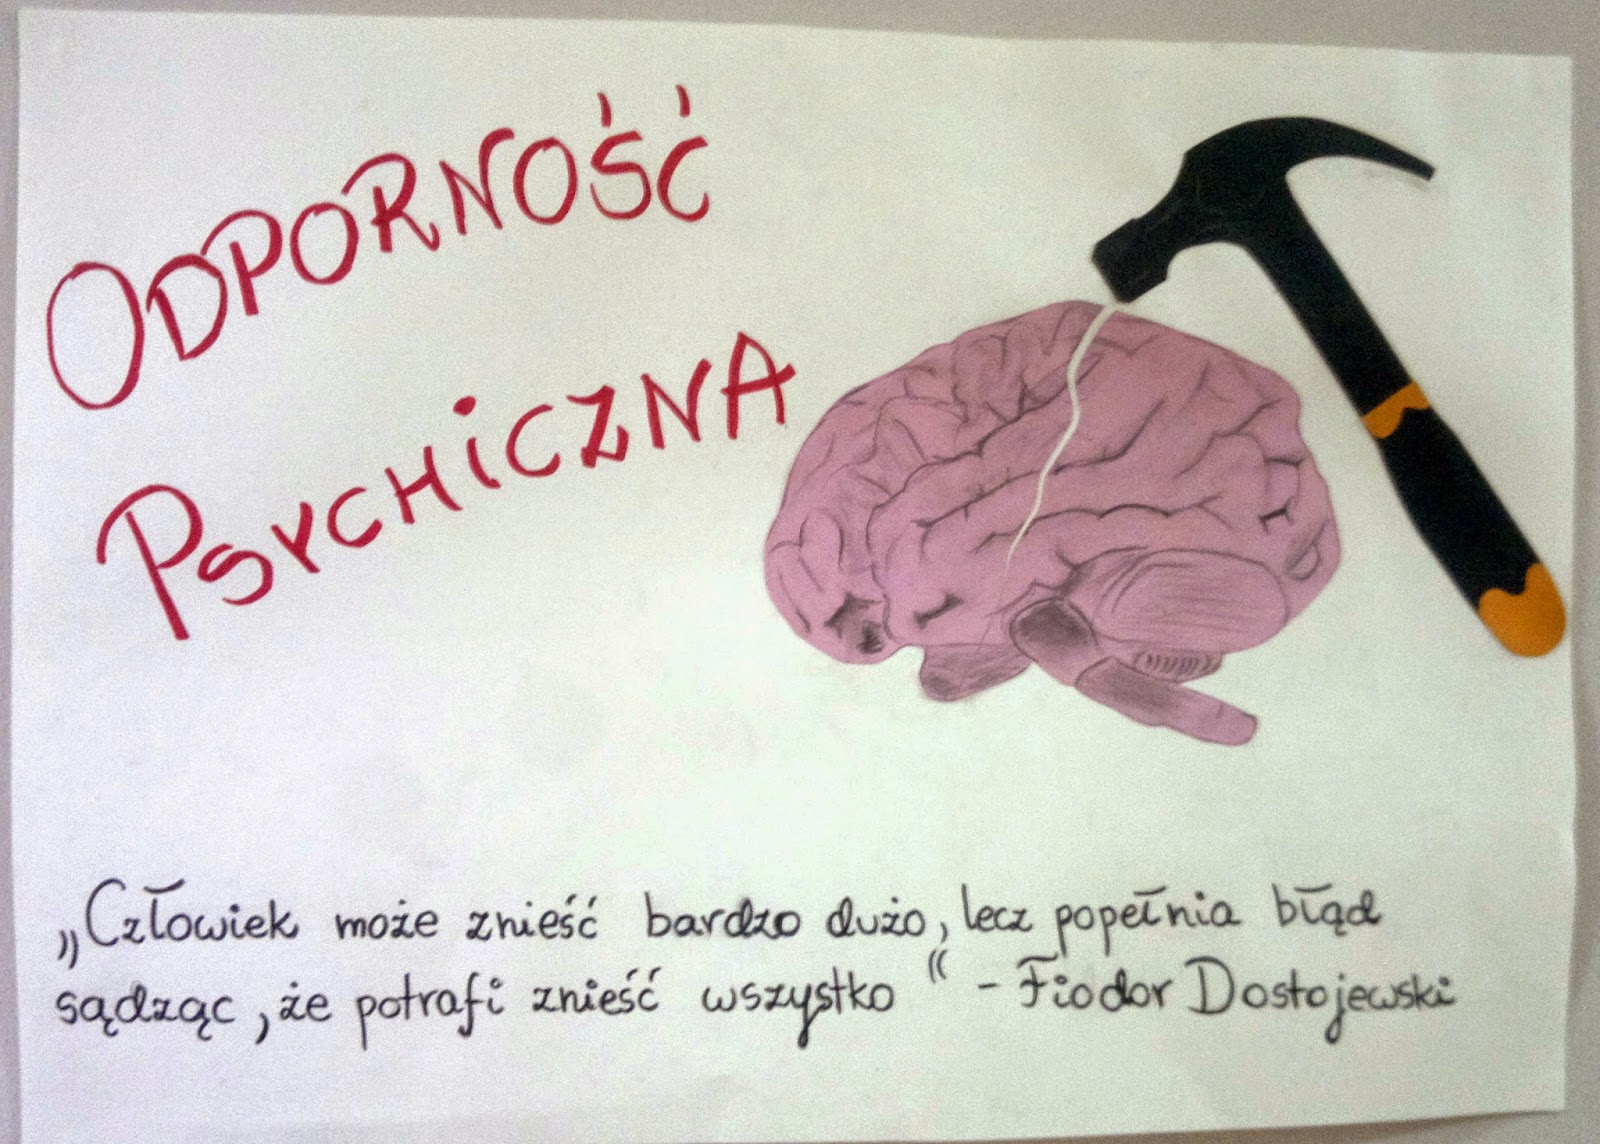 ODPORNOŚĆ
PSYCHICZNA
„Człowiek może znieść bardzo dużo, lecz popełnia błąd
sądząc, że potrafi znieść wszystko“ - Fiodor Dostojewski